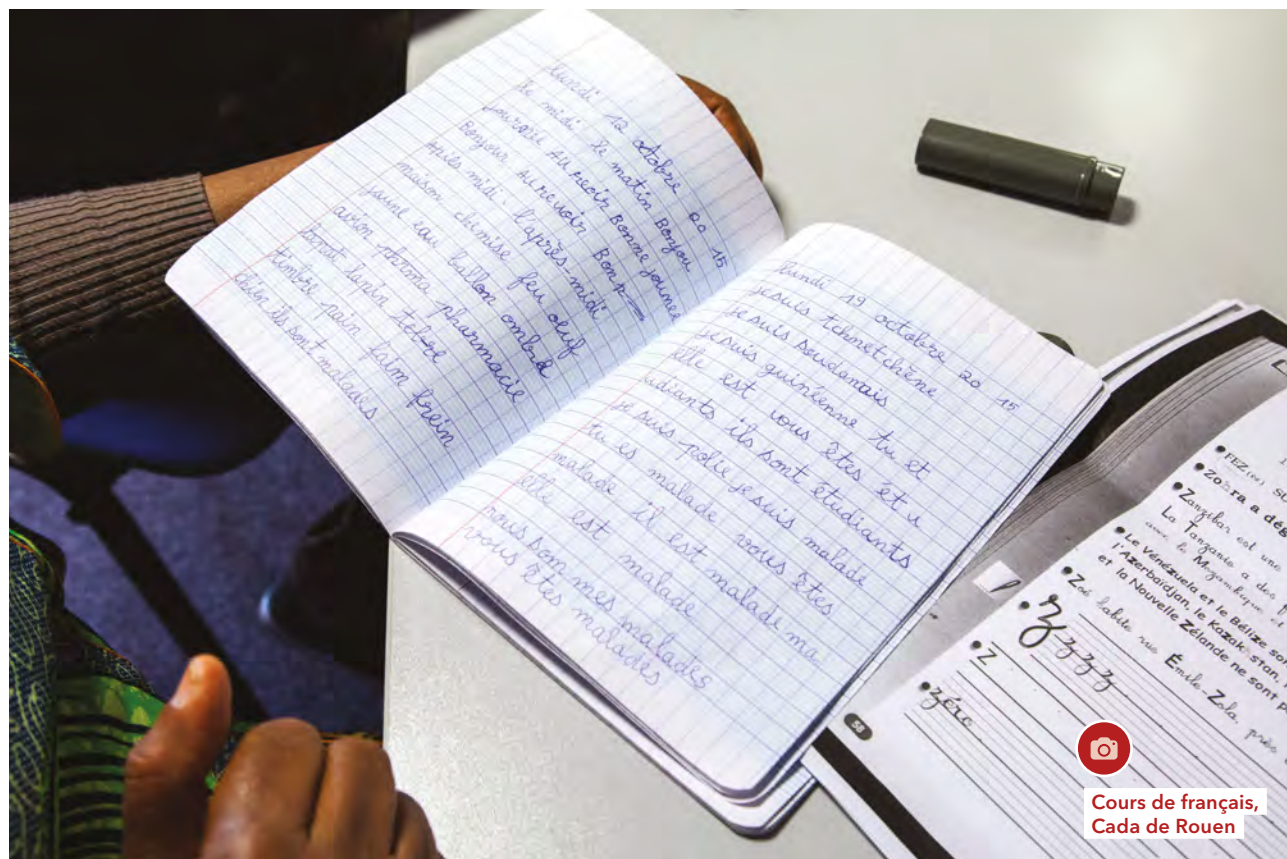 lundi 12 octobre 20 15
le midi le matin Bonjou
journée AU recir Bonne jounee
Bonjour AU revoir Bon
après midi. l'après-midi
maison chimise feu œuf
jaune eau ballon ombre
avion pharma pharmacie
lapin
timbre pain faim frein
chin ils sont malades
lundi 19 octobre 20 15
je suis tchnetchène
je suis soudanais
je suis guinéenne tu et
elle est vous êtes ét u
udiants ils sont étudiants
je suis polie je suis malade
tu es malade vous êtes
malade il est malade ma
elle est malade
nous som mes malades
vous êtes malades
FEZ
Zohra a dég
Zanzibar est une
La Tanzanie a des
avec le Mozambique
Le Vénézuela et le Bélize son
l'Azerbaïdjan, le Kazakhstan,
et la Nouvelle Zélande ne sont p
Zoé habite rue Émile Zola, près
z z z z
Z
zéro
58
Cours de français,
Cada de Rouen